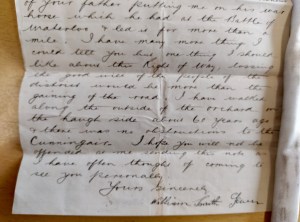 of your father putting me on his war
horse which he had at the Battle
Waterloo & led us for more than a
mile. I have many more things I
could tell you but one thing I should
like about the Right of Way, losing
the good will of the people of the
district would be more than the
gaining of the road. I have walked
along the outside of the orchard on
the haugh side about 60 years ago
& there was no obstructions to the
Cunningair. I hope you will not be
offended at me sending this note as
I have often thought of coming to
see you personally
Yours Sincerely
William Smith